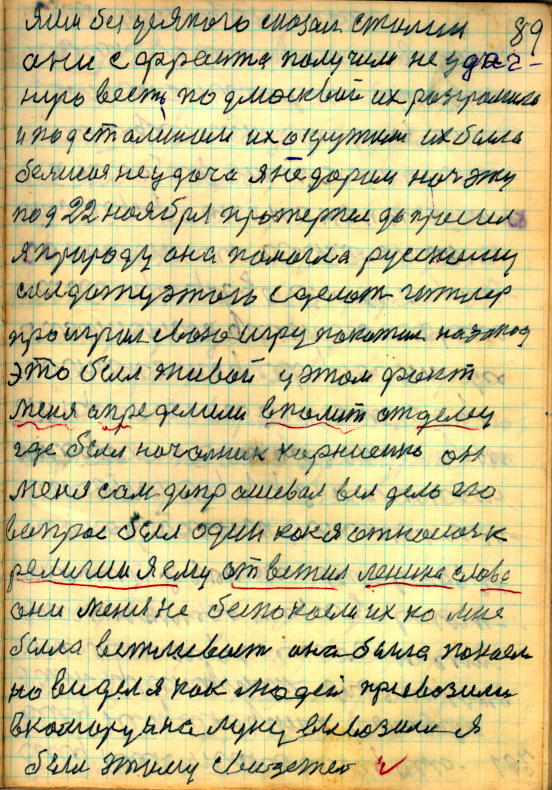 89
яли без всякого сказал сталин
они с фронта получили не удач-
ную весть под москвой их разгромили
и под сталинам их окружили их была
великая неудача я недаром ночэку
под 22 ноября продержал да просил
я природу она помогла рускаму
солдату этого сделат гитлер
проиграл свою игру покатил на запад
это был живой у этом факт
меня определили в полит отделку
где был началник корниенко он
меня сам допрашевал вел дело его
вопрос был один как я отношус к
религии я ему ответил ленина слова
они меня не беспокоели их ко мне
была вежливост она была покаем
но видел я как людей привозили
в контору и на муку вывозили я
был этому свидетел